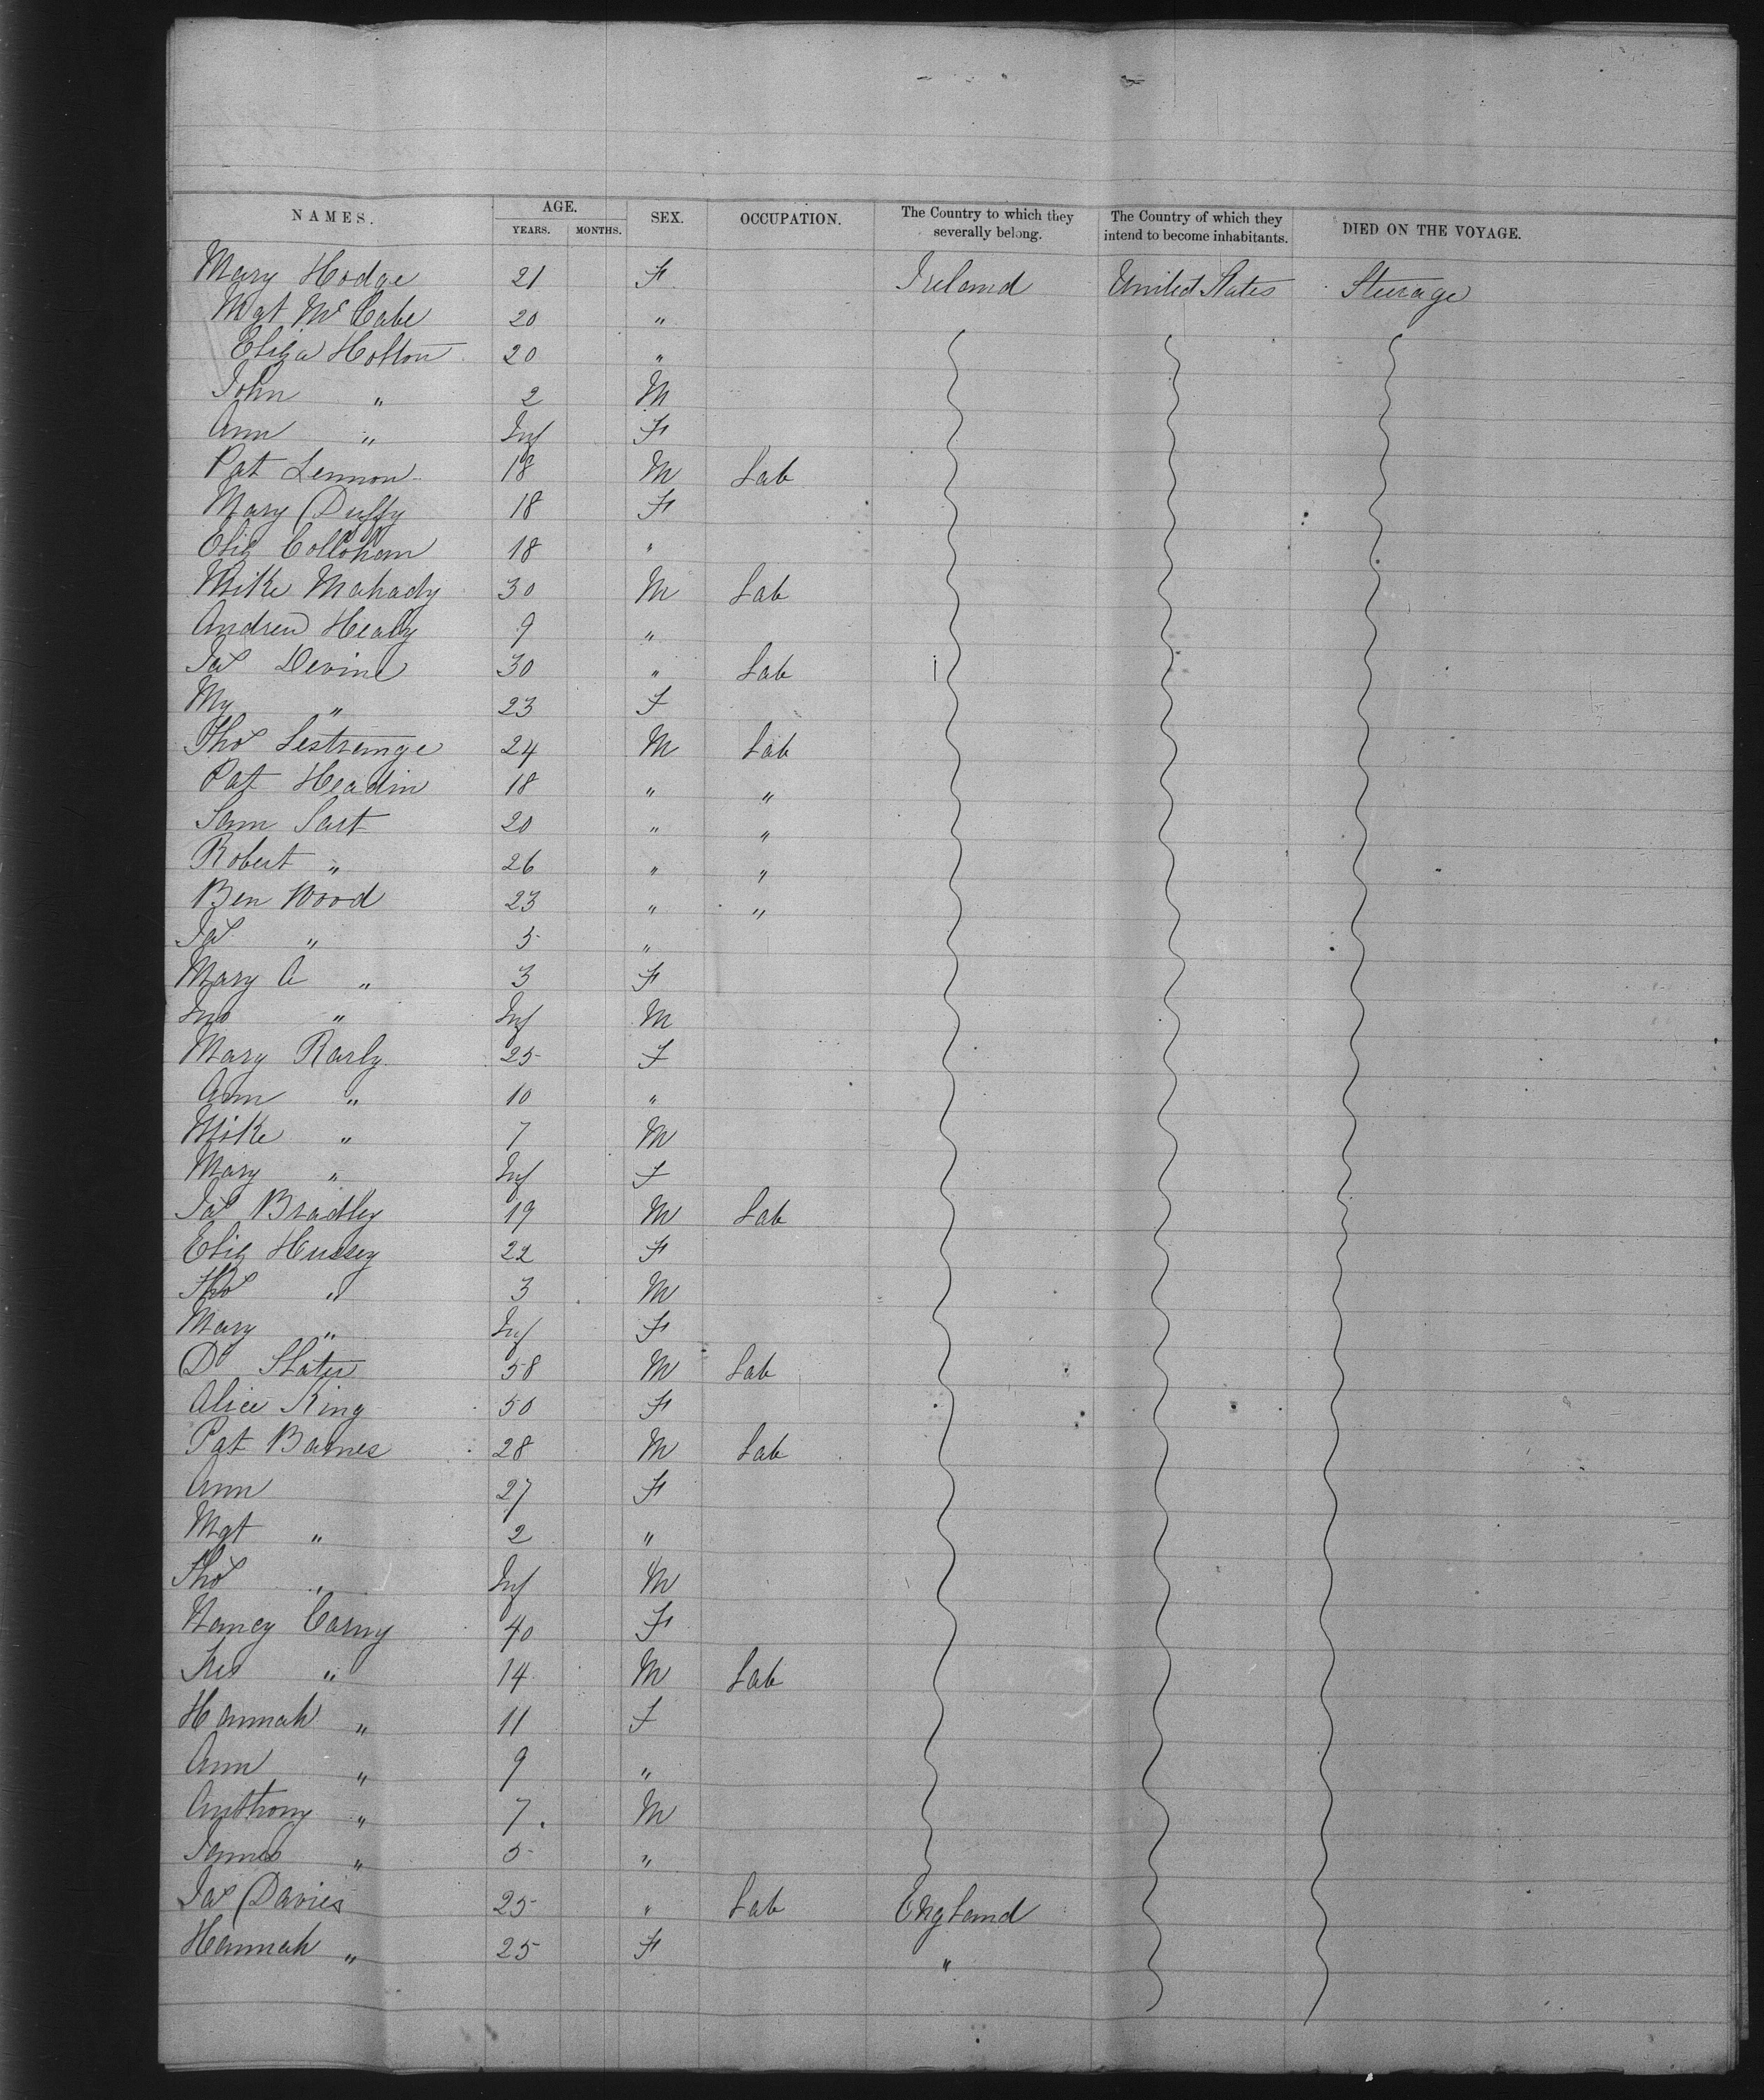 NAMES. AGE. SEX. OCCUPATION. The Country to which they severally belong. The Country of which they intend to become inhabitants. DIED ON THE VOYAGE.
YEARS. MONTHS.
Mary Hodge 21 F Ireland United States Steerage
Mgt McCabe 20 "
Eliza Holton 20 "
John " 2 M
Ann " Inf F
Pat Lennon 18 M Lab
Mary Duffy 18 F
Eliz Collohan 18 "
Mike Mahady 30 M Lab
Andrew Healy 9 "
Jas Devine 30 " Lab
My " 23 F
Thos Lestrange 24 M Lab
Pat Headin 18 " "
Sam Sart 20 " "
Robert " 26 " "
Ben Wood 23 " "
Jas " 5 "
Mary A " 3 F
Jno " Inf M
Mary Rarly 25 F
Ann " 10 "
Mike " 7 M
Mary " Inf F
Jas Bradley 19 M Lab
Eliz Hussey 22 F
Thos " 3 M
Mary " Inf F
Dd Slater 58 M Lab
Alice King 50 F
Pat Barnes 28 M Lab
Ann 27 F
Mgt " 2 "
Thos " Inf M
Nancy Carny 40 F
" 14 M Lab
Hannah " 11 F
Ann " 9 "
Anthony " 7 M
James " 5 "
Jas Davies 25 " Lab England
Hannah " 25 F "